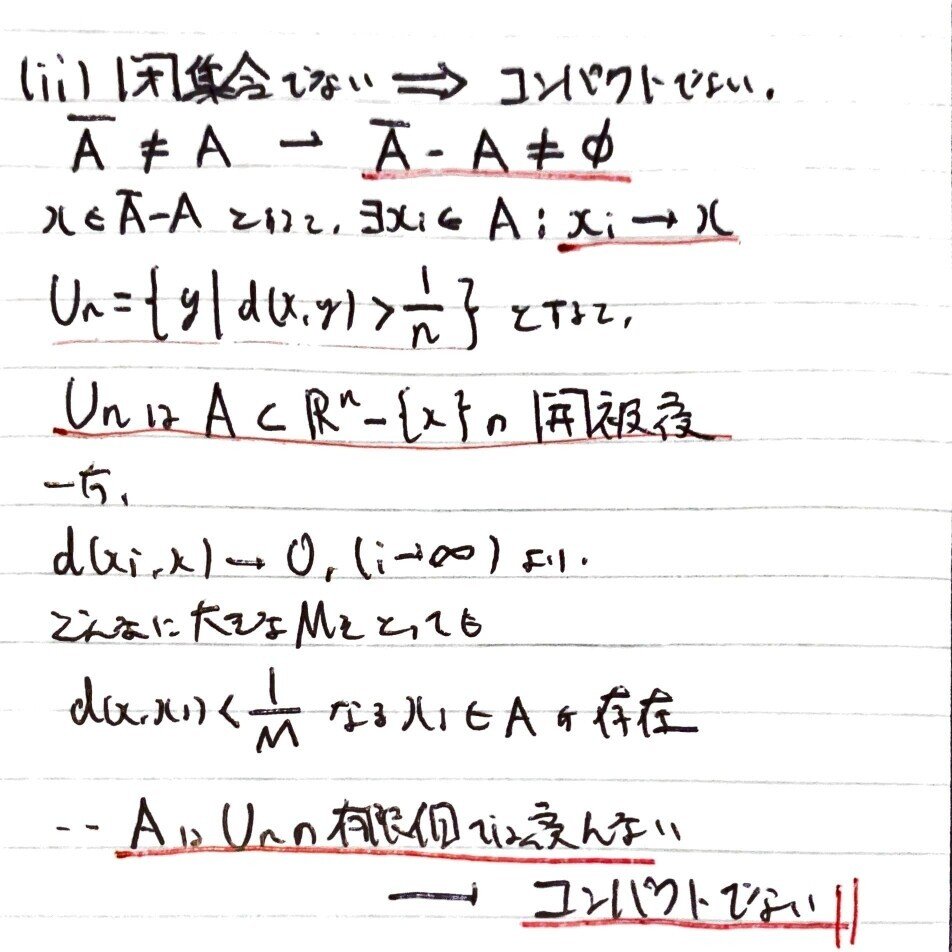 (ii) 閉集合でない ⟹ コンパクトでない.
A̅ ≠ A → A̅ - A ≠ ϕ
x ∈ A̅-A とけば, ∃xᵢ ∈ A ; xᵢ → x
Uₙ = { y | d(x,y) > 1/n } とすると,
Uₙ は A ⊂ ℝⁿ - {x} の 開被覆
一方,
d(xᵢ, x) → 0, (i→∞) より.
どんなに大きなMをとっても
d(x, xᵢ) < 1/M なる xᵢ ∈ A が存在
-- A は Uₙ の 有限個では覆えない
→ コンパクトでない